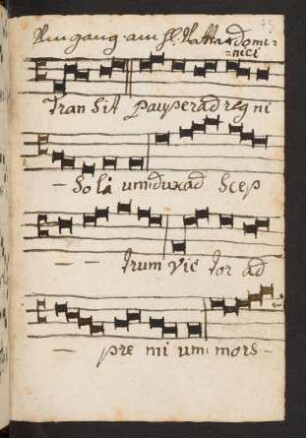 Umgang am fl. Vatter domi=
=nici
Tran sit pauper ad reg ni
- So li um: dux ad Scep
- - trum vic tor ad
- pre mi um: mors -